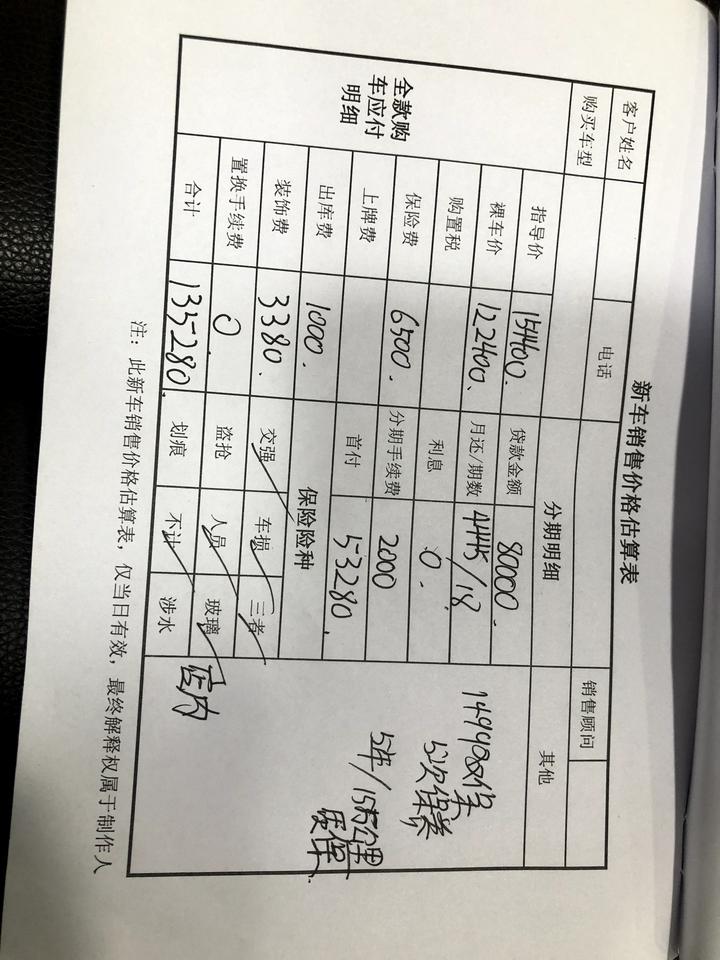 新车销售价格估算表
客户姓名 电话 销售顾问
购买车型 分期明细 其他
全款购车应付明细
指导价 154400. 贷款金额 80000.
裸车价 122400、 月还/期数 4445/18
购置税 利息 0.
保险费 6500. 分期手续费 2000
上牌费 首付 53280.
出库费 1000. 保险险种
装饰费 3380. 交强 车损 三者
置换手续费 0. 盗抢 人员 玻璃
合计 135280. 划痕 不计 涉水
店内
5次保养
5年/15万公里
质保.
注：此新车销售价格估算表，仅当日有效，最终解释权属于制作人